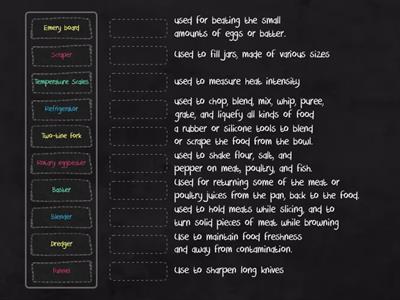 Emery board
Scraper
Temperature Scales
Refrigerator
Two-tine fork
Rotary eggbeater
Baster
Blender
Dredger
Funnel
used for beating the small
amounts of eggs or batter.
Used to fill jars, made of various sizes
used to measure heat intensity
used to chop, blend, mix, whip, puree,
grate, and liquefy all kinds of food
a rubber or silicone tools to blend
or scrape the food from the bowl.
used to shake flour, salt, and
pepper on meat, poultry, and fish.
Used for returning some of the meat or
poultry juices from the pan, back to the food.
used to hold meats while slicing, and to
turn solid pieces of meat while browning
Use to maintain food freshness
and away from contamination.
Use to sharpen long knives